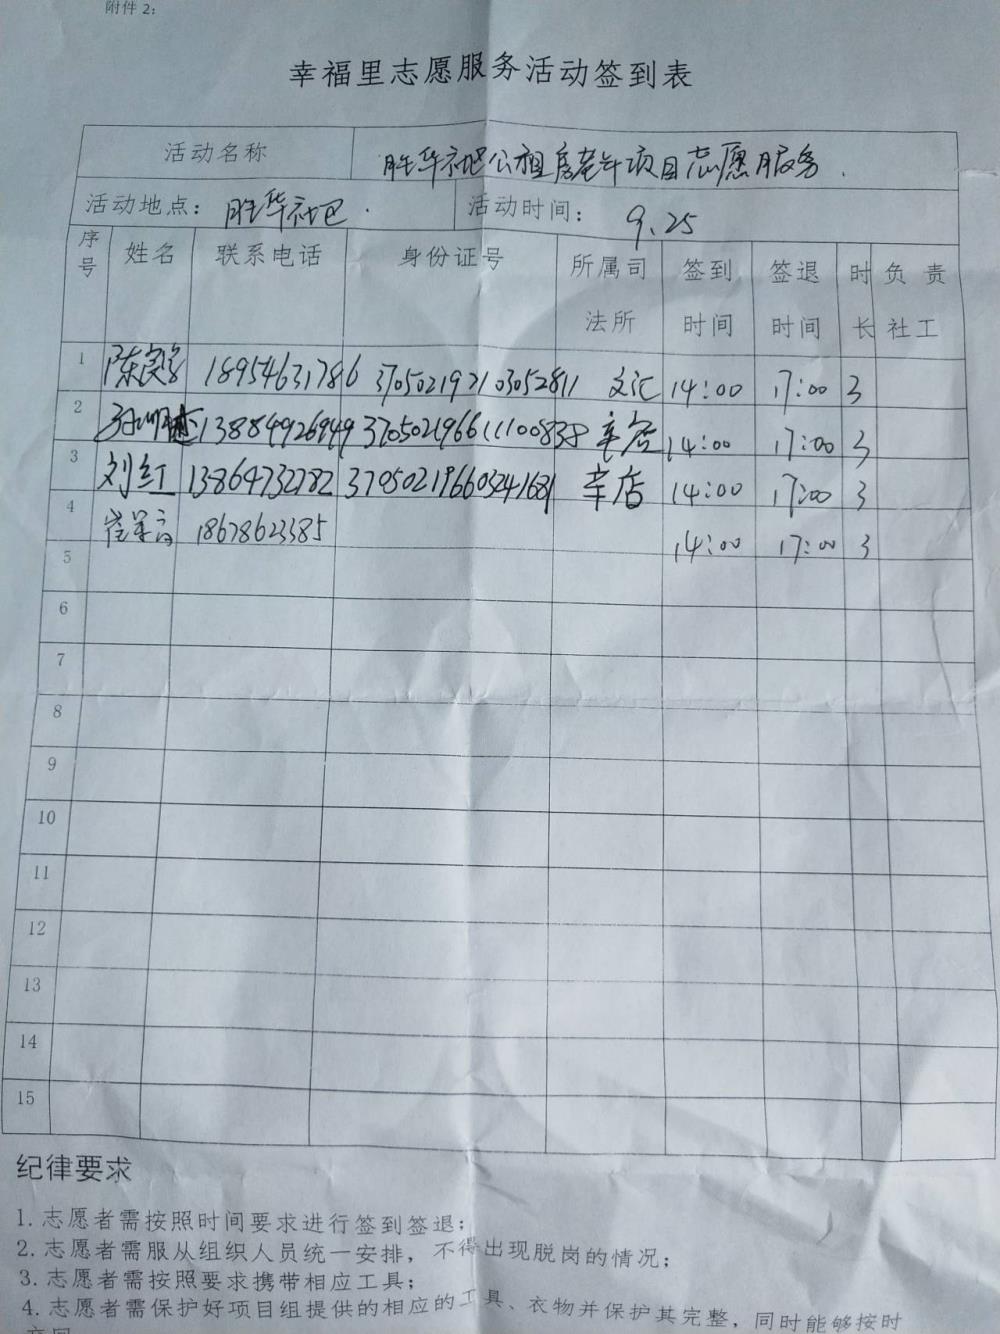 附件 2:
幸福里志愿服务活动签到表
活动名称 胜华社区公租房老年项目志愿服务.
活动地点: 胜华社区. 活动时间: 9.25
序号 姓名 联系电话 身份证号 所属司法所 签到时间 签退时间 时长 负责社工
1 18954631786 文汇 14:00 17:00 3
2 13884926949 辛店 14:00 17:00 3
3 刘红 13864732782 辛店 14:00 17:00 3
4 18678623385 14:00 17:00 3
5
6
7
8
9
10
11
12
13
14
15
纪律要求
1.志愿者需按照时间要求进行签到签退;
2.志愿者需服从组织人员统一安排，不得出现脱岗的情况;
3.志愿者需按照要求携带相应工具;
4.志愿者需保护好项目组提供的相应的工具、衣物并保护其完整，同时能够按时